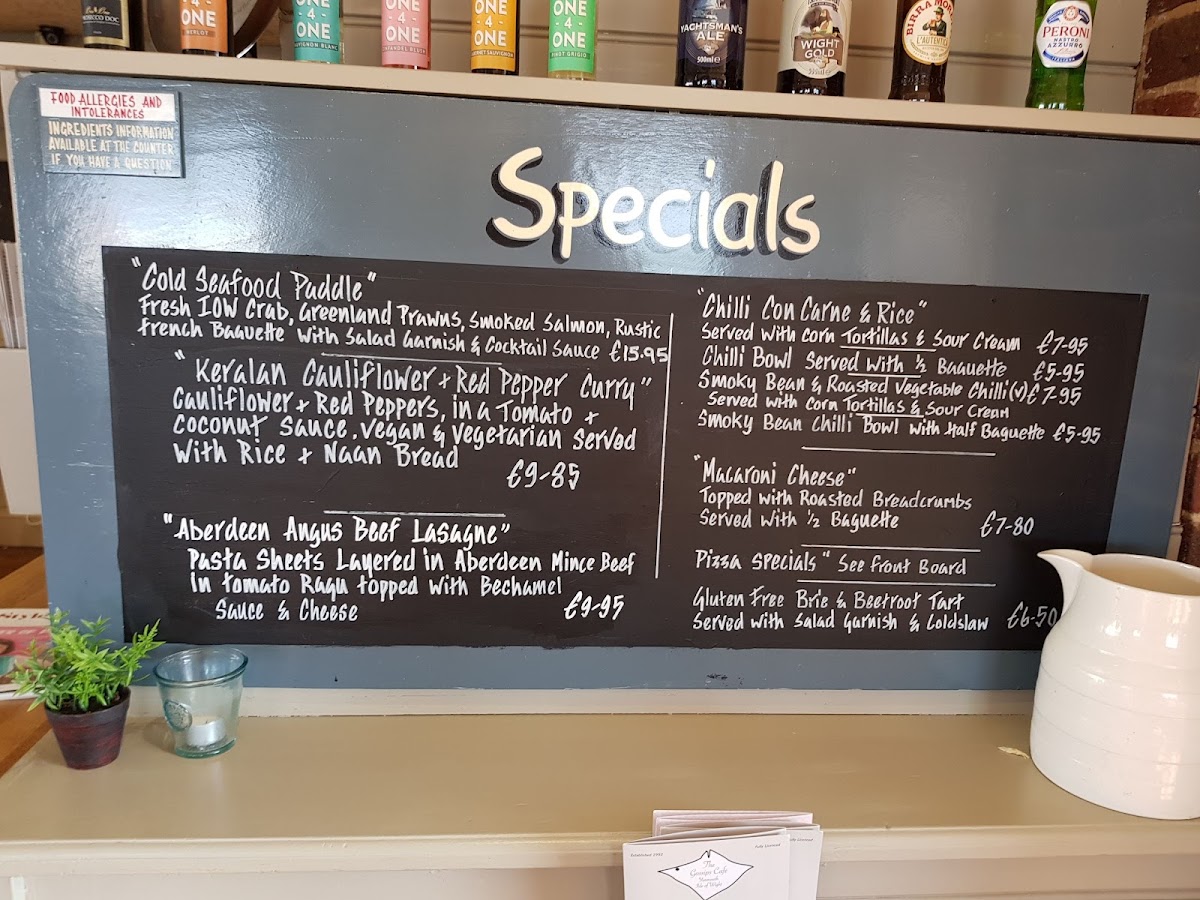 PROSECCO DOC
ONE
MERLOT
ONE
4
ONE
SAUVIGNON BLANC
ONE
4
ONE
ZINFANDEL BLUSH
ONE
4
ONE
CABERNET SAUVIGNON
ONE
4
ONE
PINOT GRIGIO
YACHTSMAN'S
ALE
500ml e
WIGHT
GOLD
BIRRA MORETTI
L'AUTENTICA
PERONI
NASTRO
AZZURRO
FOOD ALLERGIES AND
INTOLERANCES
INGREDIENTS INFORMATION
AVAILABLE AT THE COUNTER
IF YOU HAVE A QUESTION
Specials
"Cold Seafood Puddle"
Fresh IOW Crab, Greenland Prawns, Smoked Salmon, Rustic
French Baguette with Salad Garnish & Cocktail Sauce £15.95
"Keralan Cauliflower + Red Pepper Curry"
Cauliflower + Red Peppers, in a Tomato +
Coconut Sauce. Vegan & Vegetarian Served
With Rice + Naan Bread
£9-85
"Aberdeen Angus Beef Lasagne"
Pasta Sheets Layered in Aberdeen Mince Beef
in tomato Ragu topped with Bechamel
Sauce & Cheese £9-95
"Chilli Con Carne & Rice"
Served with corn Tortillas & Sour Cream £7-95
Chilli Bowl Served With ½ Baguette £5-95
Smoky Bean & Roasted Vegetable Chilli (v) £7-95
Served with corn Tortillas & Sour Cream
Smoky Bean Chilli Bowl with Half Baguette £5-95
"Macaroni Cheese"
Topped with Roasted Breadcrumbs
Served with ½ Baguette £7-80
Pizza Specials " See Front Board
Gluten Free Brie & Beetroot Tart
Served with Salad Garnish & Coldslaw £6-50
Fully Licensed
The
Gossips Cafe
Yarmouth
Isle of Wight